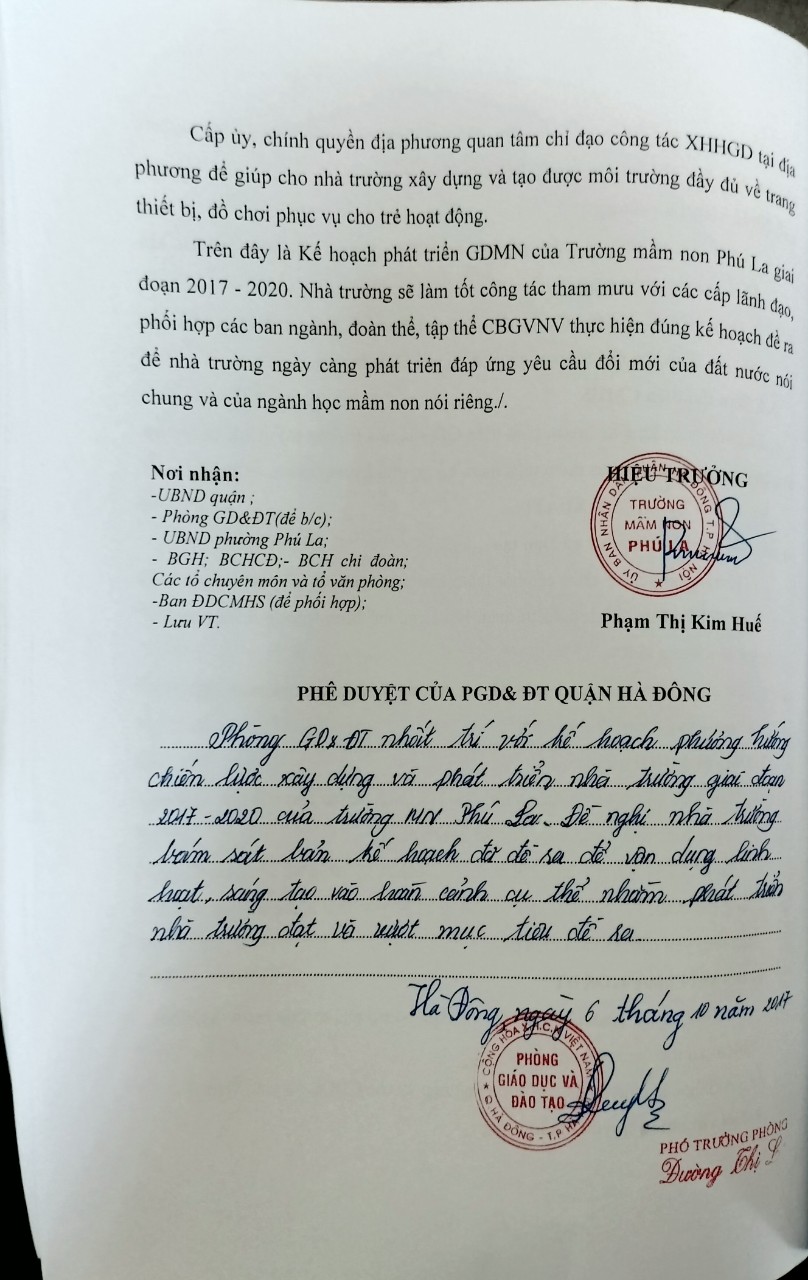 Cấp ủy, chính quyền địa phương quan tâm chỉ đạo công tác XHHGD tại địa
phương để giúp cho nhà trường xây dựng và tạo được môi trường đầy đủ về trang
thiết bị, đồ chơi phục vụ cho trẻ hoạt động.
Trên đây là Kế hoạch phát triển GDMN của Trường mầm non Phú La giai
đoạn 2017 - 2020. Nhà trường sẽ làm tốt công tác tham mưu với các cấp lãnh đạo,
phối hợp các ban ngành, đoàn thể, tập thể CBGVNV thực hiện đúng kế hoạch đề ra
để nhà trường ngày càng phát triẻn đáp ứng yêu cầu đổi mới của đất nước nói
chung và của ngành học mầm non nói riêng./.
Nơi nhận:
-UBND quận ;
- Phòng GD&ĐT(để b/c);
- UBND phường Phú La;
- BGH; BCHCĐ;- BCH chi đoàn;
Các tổ chuyên môn và tổ văn phòng;
-Ban ĐDCMHS (để phối hợp);
- Lưu VT.
HIỆU TRƯỞNG
ỦY BAN NHÂN DÂN QUẬN HÀ ĐÔNG T.P HÀ NỘI
TRƯỜNG
MẦM NON
PHÚ LA
Phạm Thị Kim Huế
PHÊ DUYỆT CỦA PGD& ĐT QUẬN HÀ ĐÔNG
Phòng GD&ĐT nhất trí với kế hoạch phương hướng
chiến lược xây dựng và phát triển nhà trường giai đoạn
2017-2020 của trường MN Phú La. Đề nghị nhà trường
bám sát bản kế hoạch đã đề ra để vận dụng linh
hoạt, sáng tạo vào hoàn cảnh cụ thể nhằm phát triển
nhà trường đạt và vượt mục tiêu đề ra
Hà Đông, ngày 6 tháng 10 năm 2017
CỘNG HÒA X.H.C.N VIỆT NAM
PHÒNG
GIÁO DỤC VÀ
ĐÀO TẠO
Q HÀ ĐÔNG - T.P HÀ
PHÓ TRƯỞNG PHÒNG
Dường Thị L